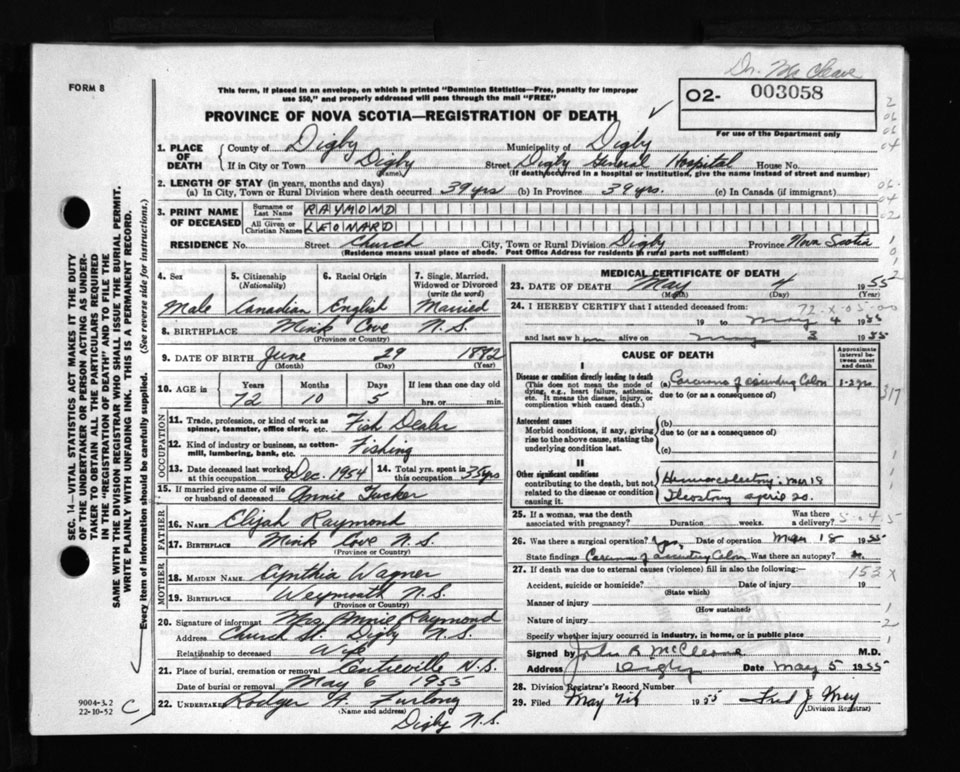 Dr. McCleave
FORM 8
This form, if placed in an envelope, on which is printed "Dominion Statistics—Free, penalty for improper
use $50," and properly addressed will pass through the mail "FREE"
O2- 003058
For use of the Department only
PROVINCE OF NOVA SCOTIA—REGISTRATION OF DEATH
1. PLACE OF DEATH
County of Digby Municipality of Digby
If in City or Town Digby (Name) Street Digby General Hospital House No.
(If death occurred in a hospital or institution, give the name instead of street and number)
2. LENGTH OF STAY (in years, months and days)
(a) In City, Town or Rural Division where death occurred 39 yrs (b) In Province 39 yrs. (c) In Canada (if immigrant)
3. PRINT NAME OF DECEASED
Surname or Last Name RAYMOND
All Given or Christian Names LEONARD
RESIDENCE No. Street Church City, Town or Rural Division Digby Province Nova Scotia
(Residence means usual place of abode. Post Office Address for residents in rural parts not sufficient)
4. Sex Male
5. Citizenship (Nationality) Canadian
6. Racial Origin English
7. Single, Married, Widowed or Divorced (write the word) Married
8. BIRTHPLACE Mink Cove N.S.
(Province or Country)
9. DATE OF BIRTH June 29 1882
(Month) (Day) (Year)
10. AGE in Years 72 Months 10 Days 5 If less than one day old hrs. or min.
OCCUPATION
11. Trade, profession, or kind of work as spinner, teamster, office clerk, etc. Fish Dealer
12. Kind of industry or business, as cotton-mill, lumbering, bank, etc. Fishing
13. Date deceased last worked at this occupation Dec. 1954 14. Total yrs. spent in this occupation 35 yrs
15. If married give name of wife or husband of deceased Annie Tucker
FATHER
16. NAME Elijah Raymond
17. BIRTHPLACE Mink Cove N.S.
(Province or Country)
MOTHER
18. MAIDEN NAME Cynthia Wagner
19. BIRTHPLACE Weymouth N.S.
(Province or Country)
20. Signature of informant Mrs. Annie Raymond
Address Church St. Digby N.S.
Relationship to deceased Wife
21. Place of burial, cremation or removal Centreville N.S.
Date of burial or removal May 6 1955
22. UNDERTAKER Rodger A. Furlong
(Name and address) Digby N.S.
MEDICAL CERTIFICATE OF DEATH
23. DATE OF DEATH May 4 1955
(Month) (Day) (Year)
24. I HEREBY CERTIFY that I attended deceased from:
19 to May 4 1955
and last saw h im alive on May 3 1955
CAUSE OF DEATH
Approximate interval between onset and death
I
Disease or condition directly leading to death
(This does not mean the mode of dying, e.g., heart failure, asthenia, etc. It means the disease, injury, or complication which caused death.)
(a) Carcinoma of ascending Colon 1-2 yrs
due to (or as a consequence of)
Antecedent causes
Morbid conditions, if any, giving rise to the above cause, stating the underlying condition last.
(b)
due to (or as a consequence of)
(c)
II
Other significant conditions
contributing to the death, but not related to the disease or condition causing it.
Ileostomy April 20.
25. If a woman, was the death associated with pregnancy? Duration weeks. Was there a delivery?
26. Was there a surgical operation? Yes Date of operation Mar 18 1955
State findings Carcinoma of ascending Colon Was there an autopsy? no
27. If death was due to external causes (violence) fill in also the following:—
Accident, suicide or homicide? Date of injury 19
(State which)
Manner of injury
(How sustained)
Nature of injury
Specify whether injury occurred in industry, in home, or in public place
153 x
317
Signed by John R McCleave M.D.
Address Digby Date May 5 1955
28. Division Registrar's Record Number
29. Filed May 7th 1955 Fred J. May
(Division Registrar)
SEC. 14—VITAL STATISTICS ACT MAKES IT THE DUTY
OF THE UNDERTAKER OR PERSON ACTING AS UNDER-
TAKER TO OBTAIN ALL THE PARTICULARS REQUIRED
IN THE "REGISTRATION OF DEATH" AND TO FILE THE
SAME WITH THE DIVISION REGISTRAR WHO SHALL ISSUE THE BURIAL PERMIT.
WRITE PLAINLY WITH UNFADING INK. THIS IS A PERMANENT RECORD.
Every item of information should be carefully supplied. (See reverse side for instructions.)
9004-3.2
22-10-52
C